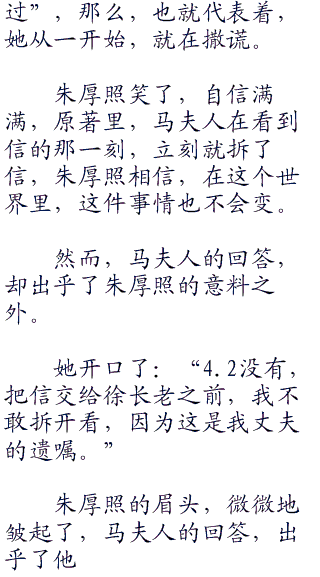 过”，那么，也就代表着，
她从一开始，就在撒谎。
朱厚照笑了，自信满
满，原著里，马夫人在看到
信的那一刻，立刻就拆了
信，朱厚照相信，在这个世
界里，这件事情也不会变。
然而，马夫人的回答，
却出乎了朱厚照的意料之
外。
她开口了：“4.2没有，
把信交给徐长老之前，我不
敢拆开看，因为这是我丈夫
的遗嘱。”
朱厚照的眉头，微微地
皱起了，马夫人的回答，出
乎了他